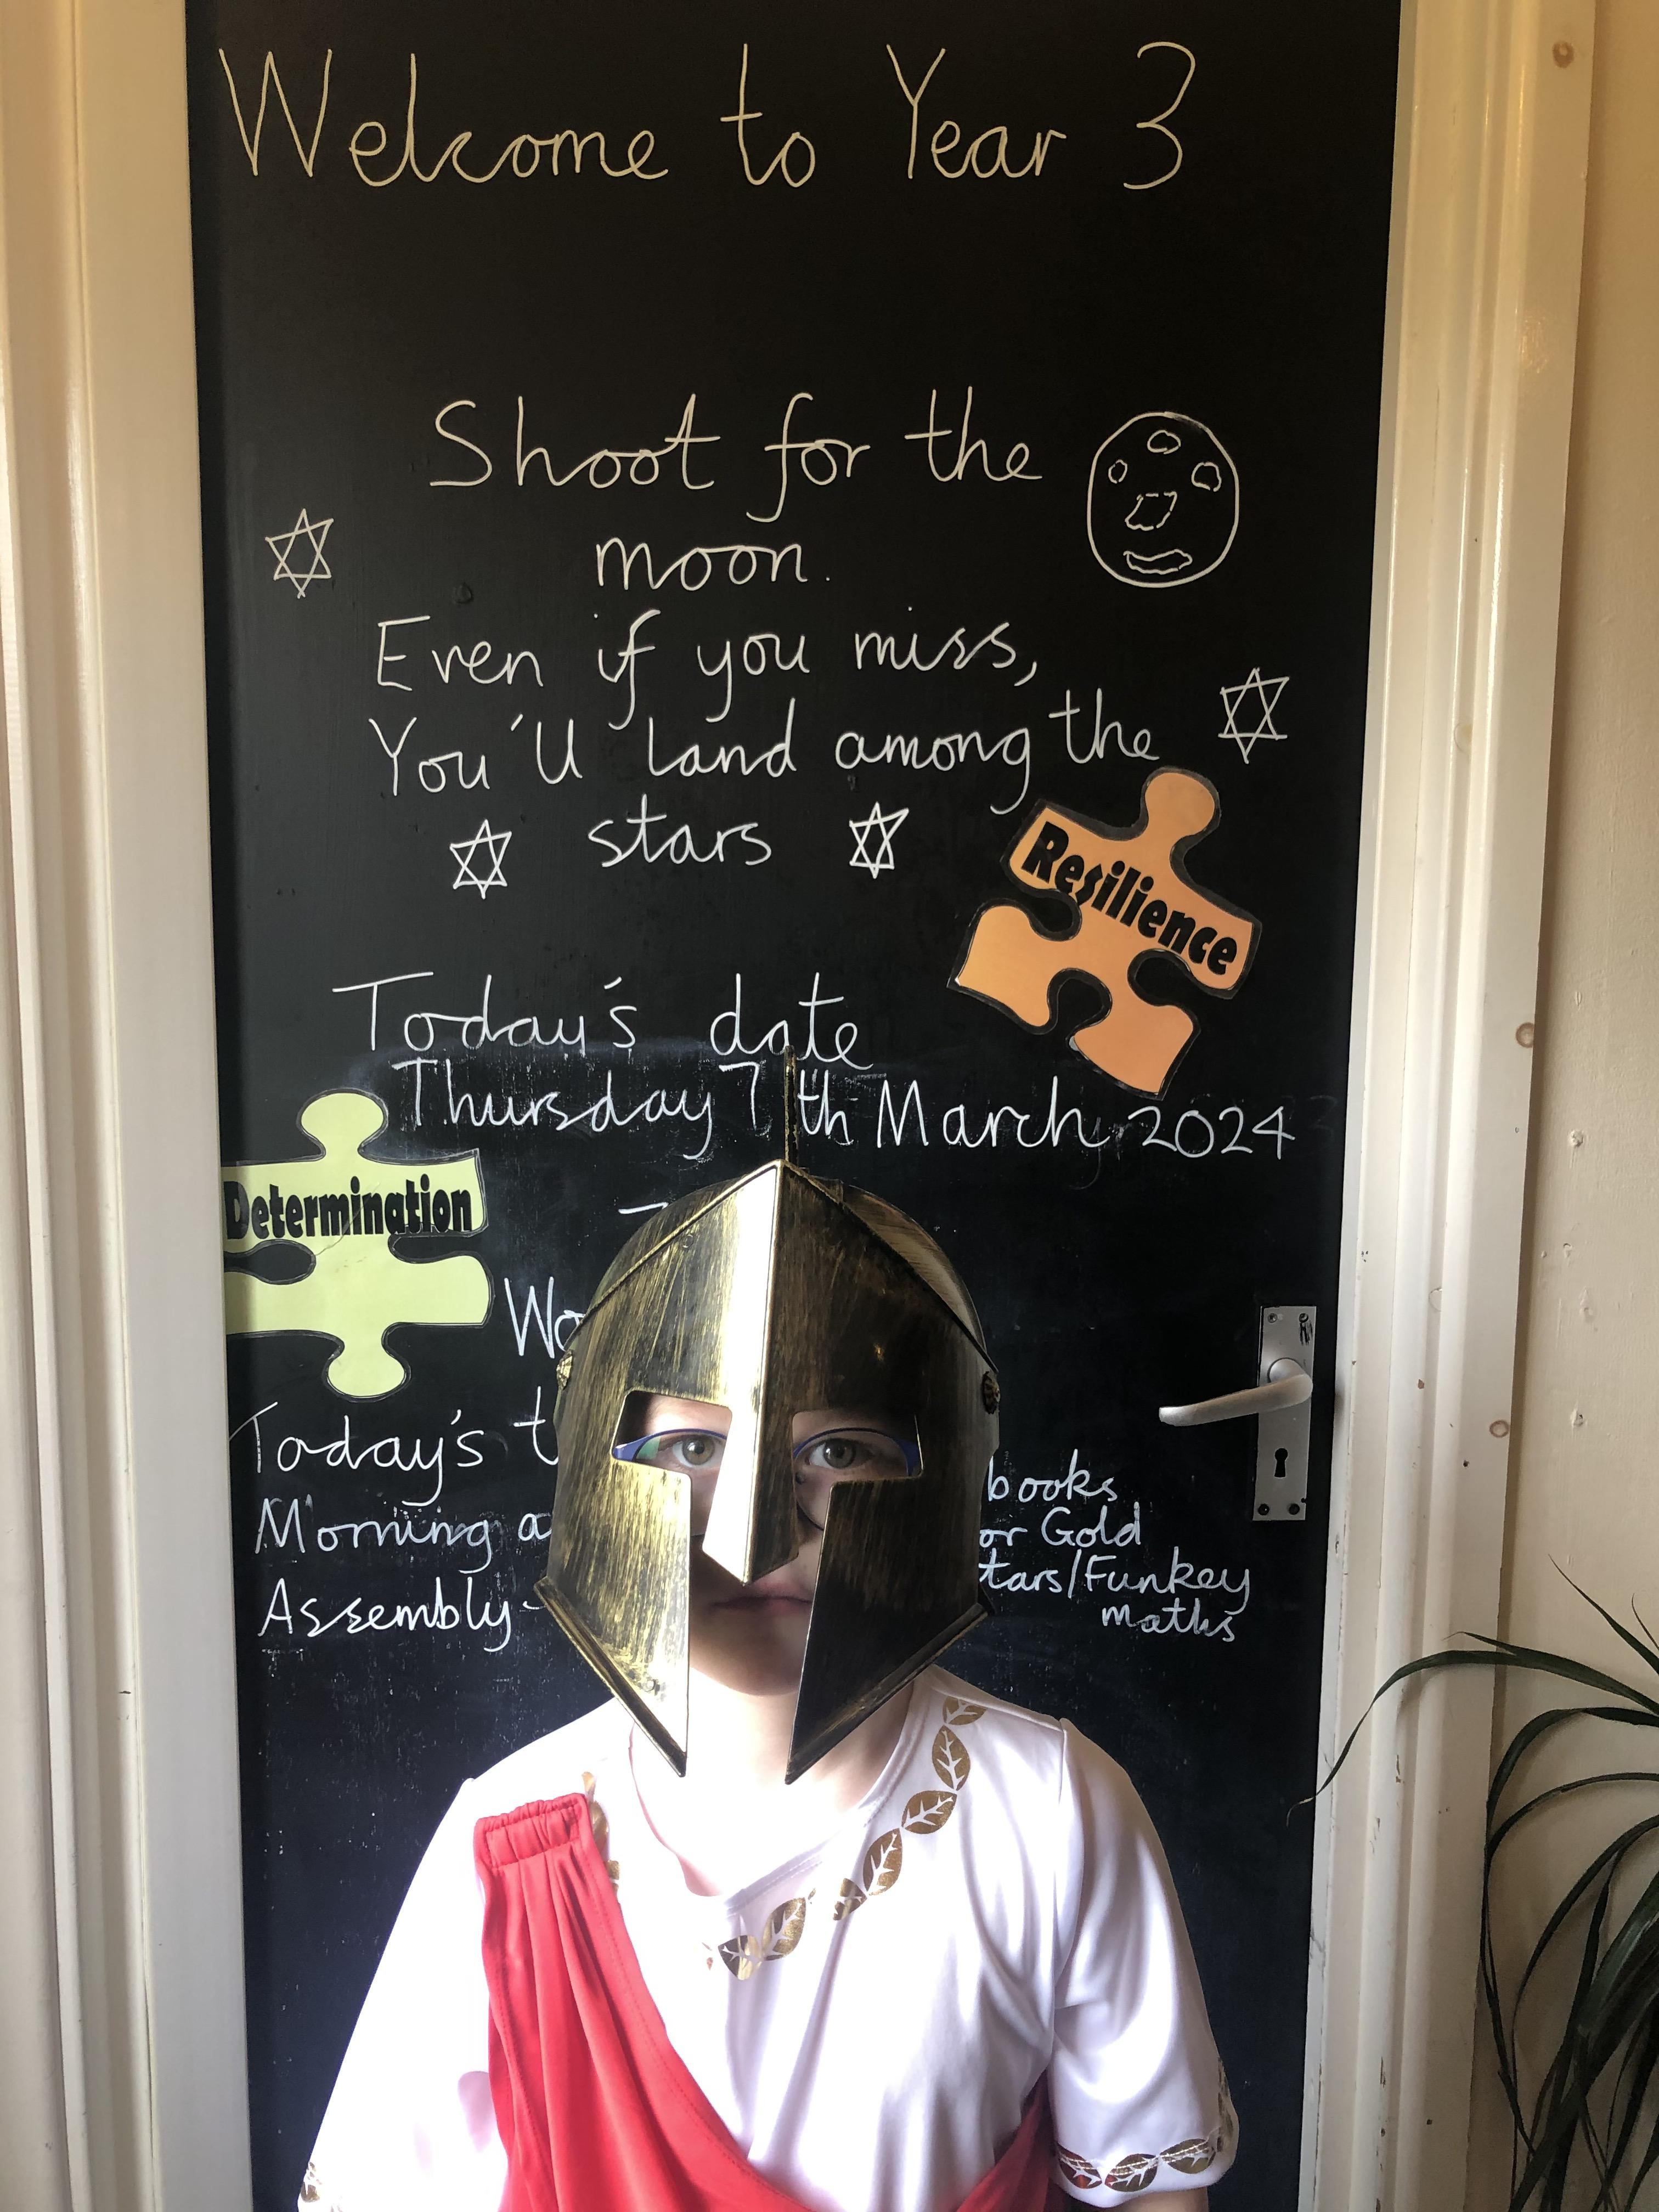 Welcome to Year 3
Shoot for the
moon.
Even if you miss,
You'll land among the
stars
Resilience
Today's date
Thursday 7th March 2024
Determination
Today's
books
Morning
or Gold
Funkey
Assembly-
maths